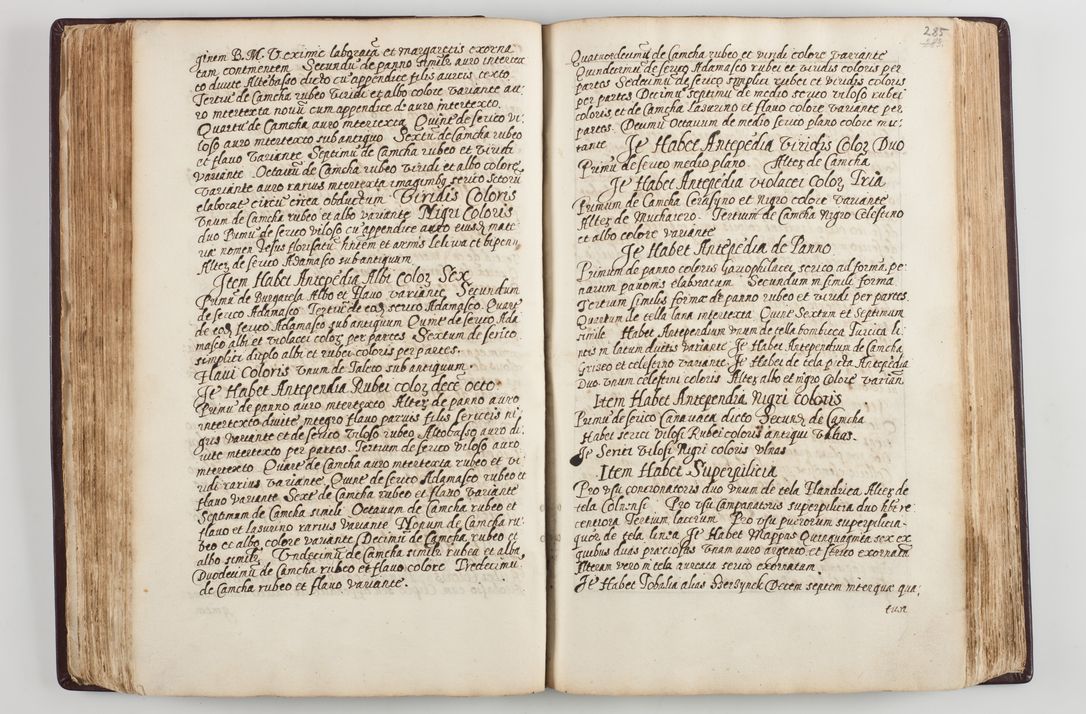 ginem B. M. V. eximie laboratā et margaretis exorna
tam continentem Secundū de panno simili auro intertex
to divite Altebasso dicto cū appendice filis aureis texto
Tertiū de Camcha rubeo viridi et albo colore variante au,
ro intertexta novū cum appendice de auro intertexto.
Quartū de Camcha auro intertexta Quintū de serico vi,
loso auro intertexto subantiquo Sextū de Camcha rubeo
et flavo variante Septimū de Camcha rubeo et viridi
variante Octavū de Camcha rubeo viridi et albo colore
variante auro rarius intertexta imaginibꝫ serico
elaborat circū circa obductum Viridis Coloris
Vnum de Camcha rubeo et albo variante Nigri Coloris
duo Primū de serico viloso cū appendice auro eiusdē
nomen Jesus florisatū hñtem et armis Leliwa et bipenn
Alteꝝ de serico Adamasco subantiquum
Item Habet Antepēdia Albi Coloꝝ Sex
Primū de Burgatela Albo et flavo variante Secundum
de serico Adamasco Tertiū de eodē serico Adamasco Quart
de eodē serico Adamasco subantiquum Quintū de serico Ada
masco albi et violacei coloꝝ per partes Sextum de serico
simplici duplo albi et rubei coloris per partes.
Flavi Coloris vnum de Taleto subantiquum.
Jt Habet Antependia Rubei coloꝝ decē octo.
Primū de panno auro intertexto Alteꝝ de panno auro
intertexto divite integro flavo parvis filis sericeis ni,
gris variante et de serico viloso rubeo Altobasso auro di,
vite intertexto per partes. Tertium de serico viloso auro
intertexto Quartū de Camcha auro intertexta rubeo et vi
ridi rarius variante. Quintū de serico Adamasco rubeo et
flavo variante Sextū de Camcha rubeo et flavo variante
Septimum de Camcha simili Octavum de Camcha rubeo et
flavo et lasurino rarius variante Nonum de Camcha ru,
beo et albo colore variante Decimū de Camcha rubeo et
albo simile Vndecimū de Camcha simile rubea et alba
Duodecimū de Camcha rubeo et flavo colore Tredecimū
de Camcha rubeo et flavo variante.
285
Quatuordecimū de Camcha rubeo et viridi colore variante
Quindecimū de serico Adamasco rubei et viridis coloris per
partes Sedecimū de serico simplici rubei et viridis coloris
per partes Decimū septimū de medio serico viloso rubei
coloris, et de Camcha Lasurino et flavo colore variante per
partes. Decimū Octavum de medio serico plano colore mu,
tante Jt Habet Antepēdia Viridis Coloꝝ Duo
Primū de serico medio plano. Alteꝝ de Camcha
Jt Habet Antepēdia violacei Coloꝝ Tria
Primum de Camcha Cerasino et nigro colore variante
Alteꝝ de Muchaiero. Tertium de Camcha Nigro Celestino
et albo colore variante
Jt Habet Antepēdia de Panno
Primum de panno coloris Gariophilacei serico ad formā pe,
narum pavonis elaboratum Secundum in simili forma
Tertium similis formæ de panno rubeo et viridi per partes.
Quartum de tella lana intertexta Quintū Sextum et Septimum
simile Habet Antependium vnum de tella bombicea Turcica li,
neis in latum ductis variante Jt Habet Antependium de Camcha
Griseo et celestino variante Jt Habet de tela picta Antepēdia
Duo vnum celestini coloris Alteꝝ albo et nigro colore variante
Item Habet Antependia Nigri Coloris
Primū de serico Canavaca dicto Secundū de Camcha
Habet serici vilosi Rubei coloris antiqui Vlnas.
Jt Serici vilosi Nigri coloris vlnas
Item Habet Superpilicia
Pro vsu concionatoris duo vnum de tela Flandrica Alteꝝ de
tela Pro vsu campanatoris superpilicia duo hñt re
centiora Tertium lacerum Pro vsu puerorum superpilicia
quoꝝ de tela linea Jt Habet Mappas Quinquaginta sex ex
quibus duas praeciosas vnam auro argento et serico exornatam
Alteram vero in tela aurata serico exornatam.
Jt Habet Tobalia alias Derdynek Decem septem inter quæ qua,
tuor